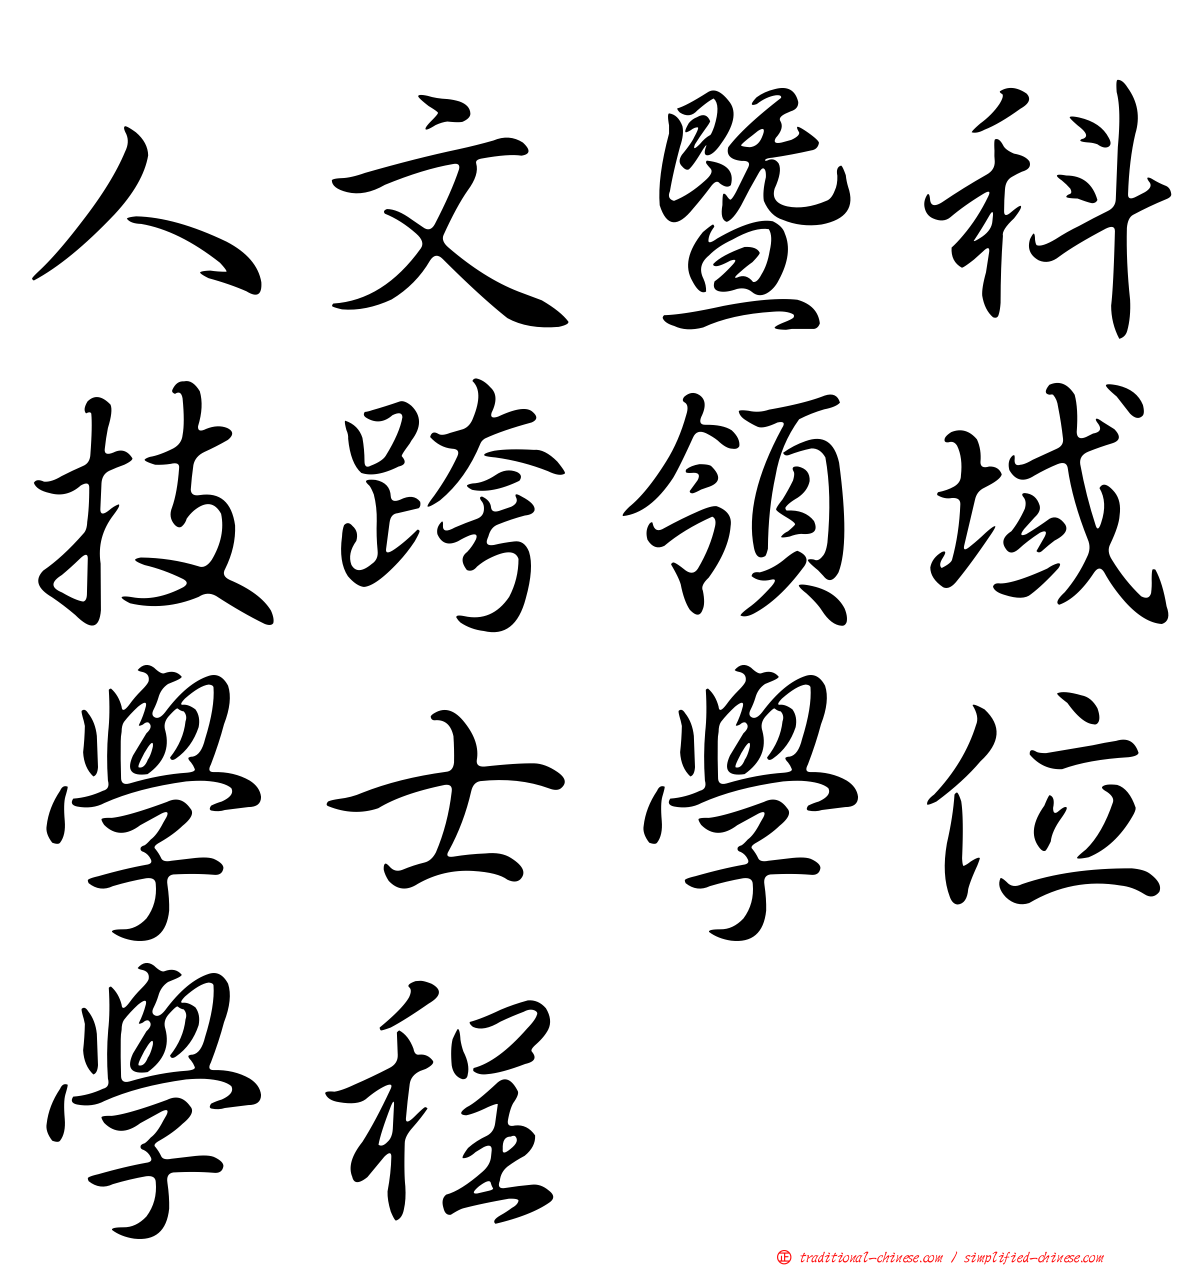 人文暨科
技跨領域
學士學位
學程
正 traditional-chinese.com / simplified-chinese.com